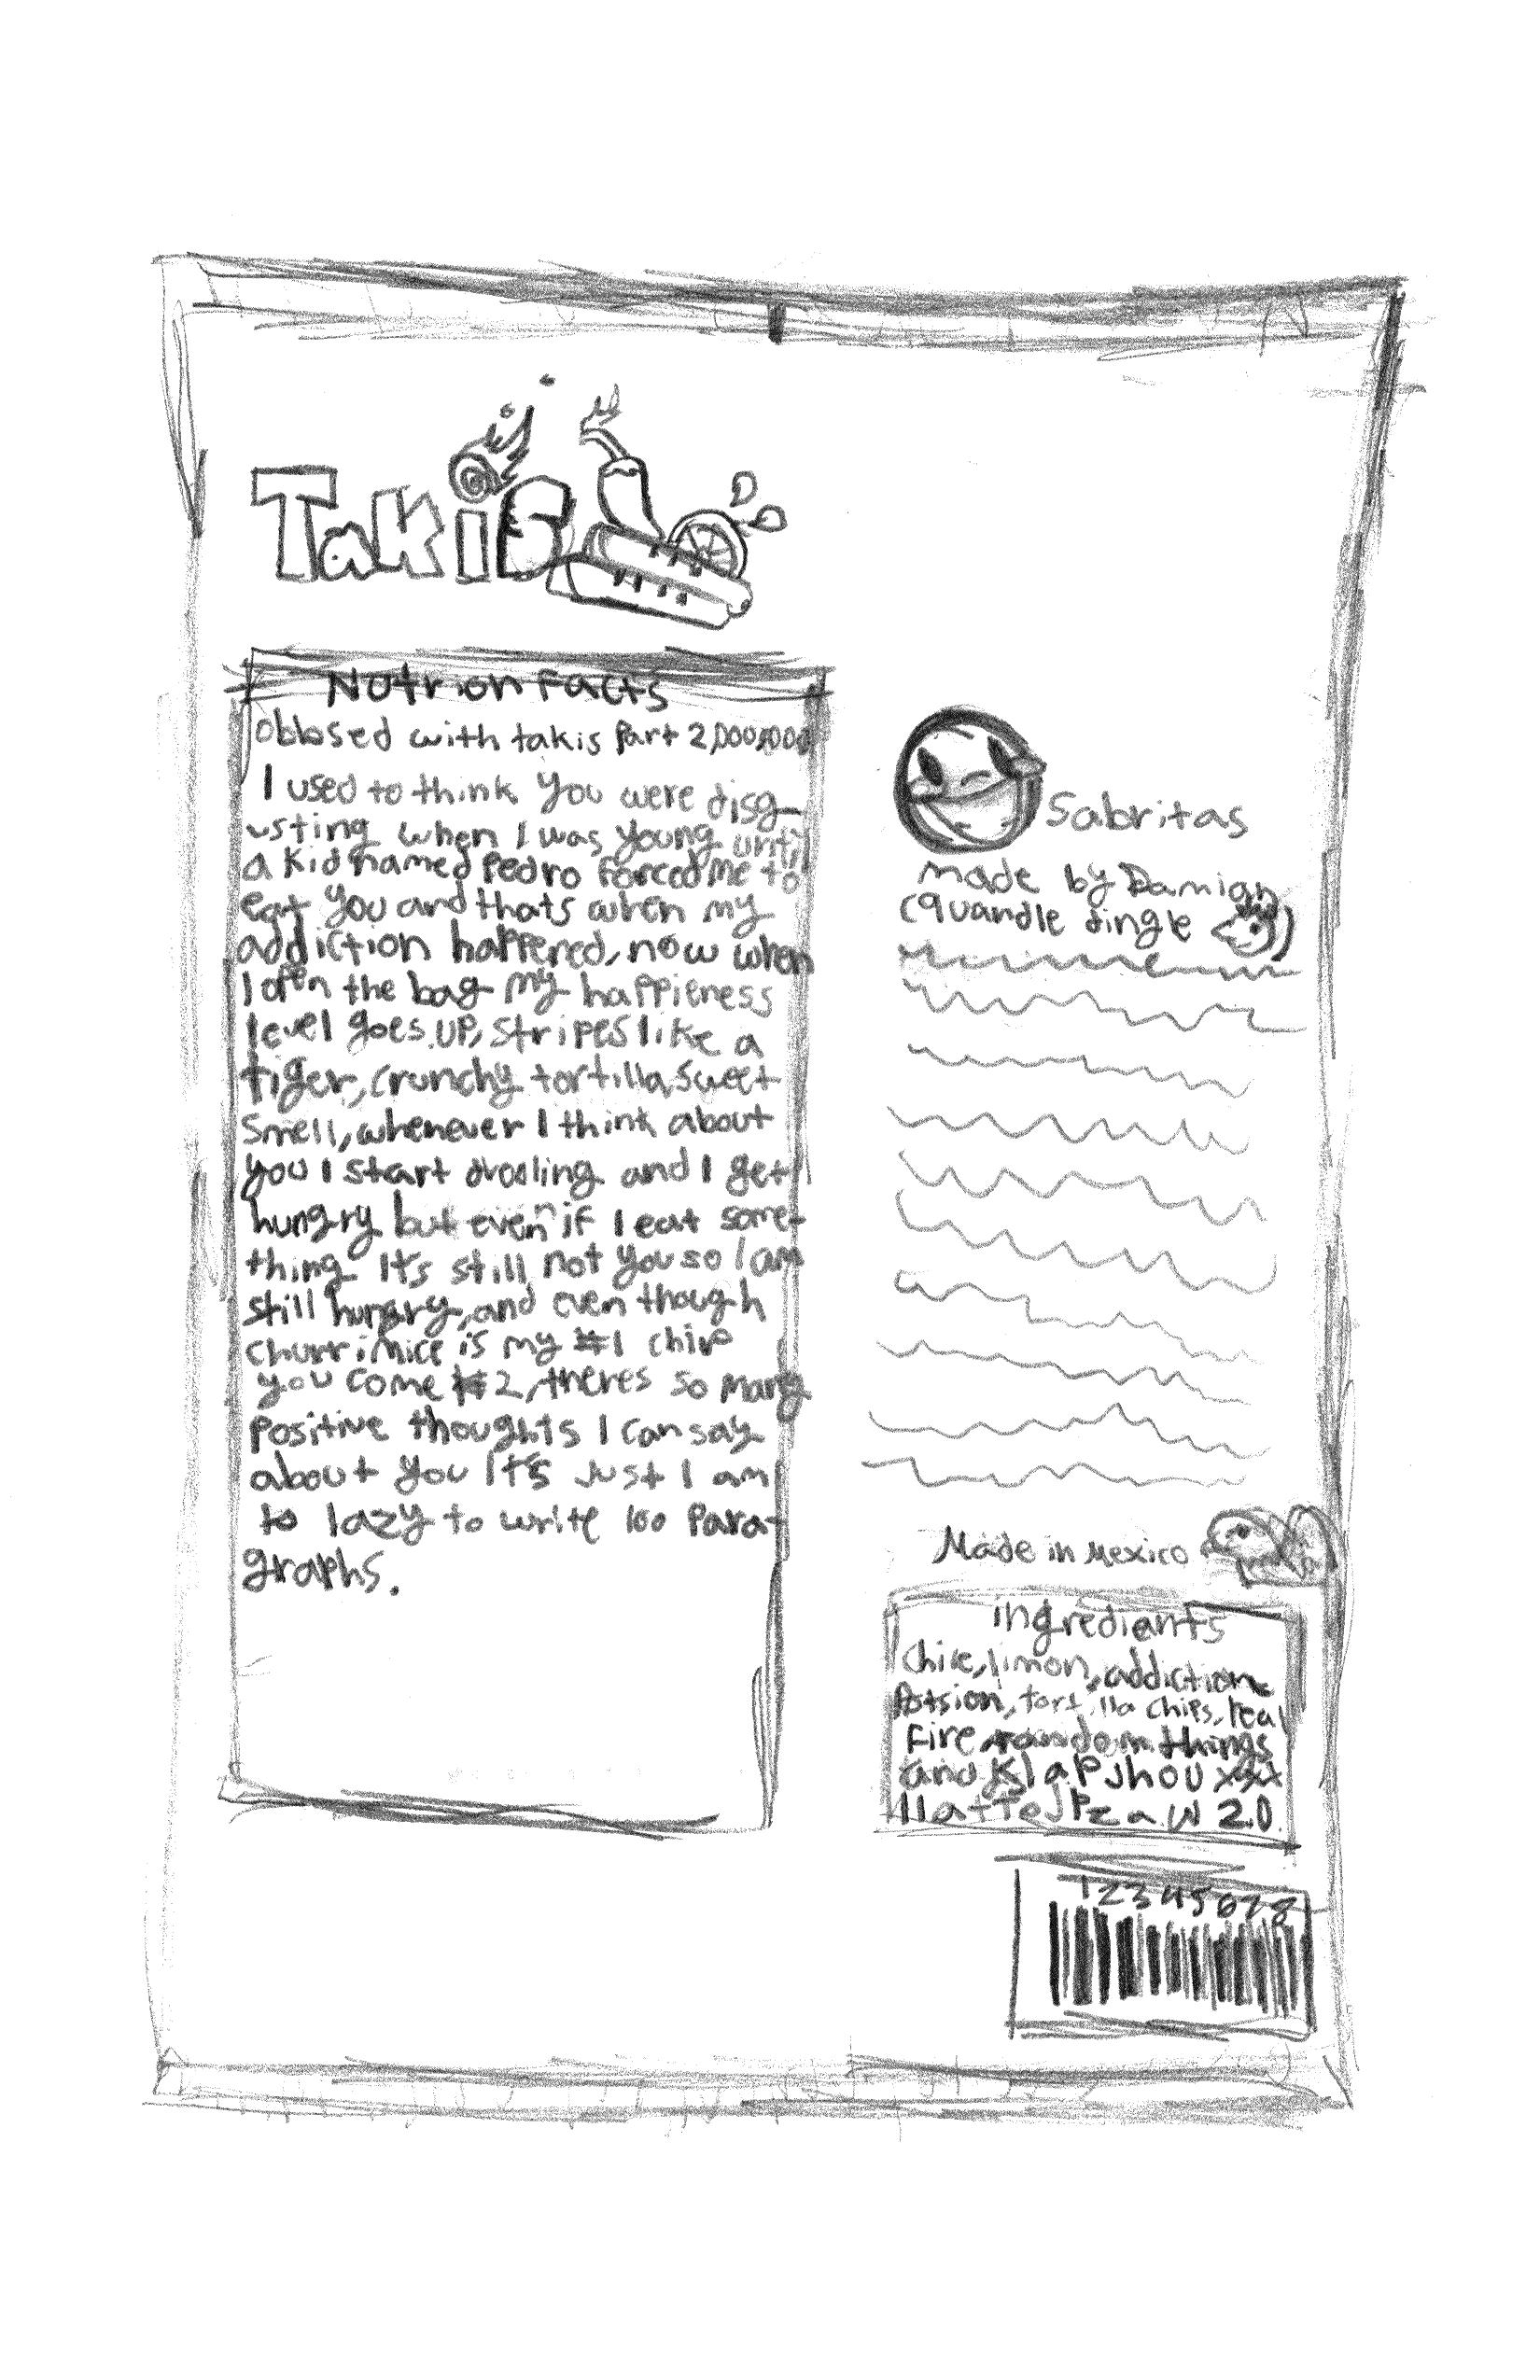 Takis
Notrion Facts
Obbsed with takis Part 2,000,000
I used to think you were disg-
usting when I was young until
a kid named Pedro forced me to
eat you and thats when my
addiction happened, now when
I open the bag my happieness
level goes up, stripes like a
tiger, crunchy tortilla, sweet
smell, whenever I think about
you I start drooling and I get
hungry but even if I eat some-
thing It's still not you so I am
still hungry, and even though
churrimice is my #1 chip
you come #2, theres so many
positive thoughts I can say
about you It's Just I am
to lazy to write 100 Para-
graphs.
Sabritas
made by Damian
(quandle dingle )
Made in Mexico
ingrediants
Chile, limon, addiction
Potsion, tortilla chips, real
fire, random things
and
2.0
12345678